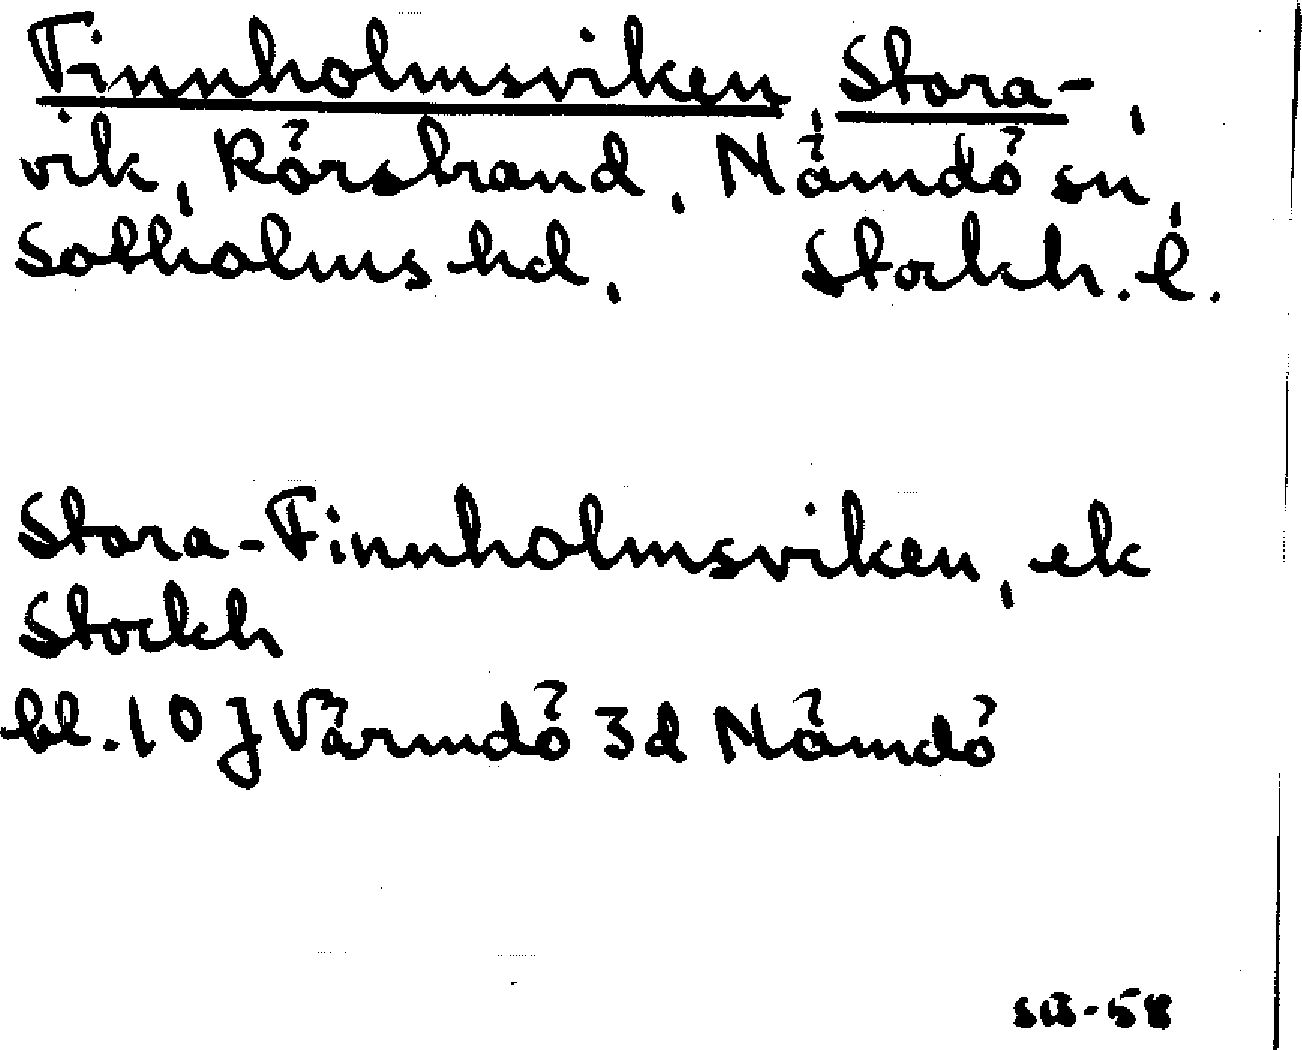 Finnholmsviken, Stora-,
vik, Rörstrand, Nämdö sn,
Sotholms hd, Stockh. l.
Stora-Finnholmsviken, ek
Stockh
bl. 10 J Värmdö 3d Nämdö
SB-58